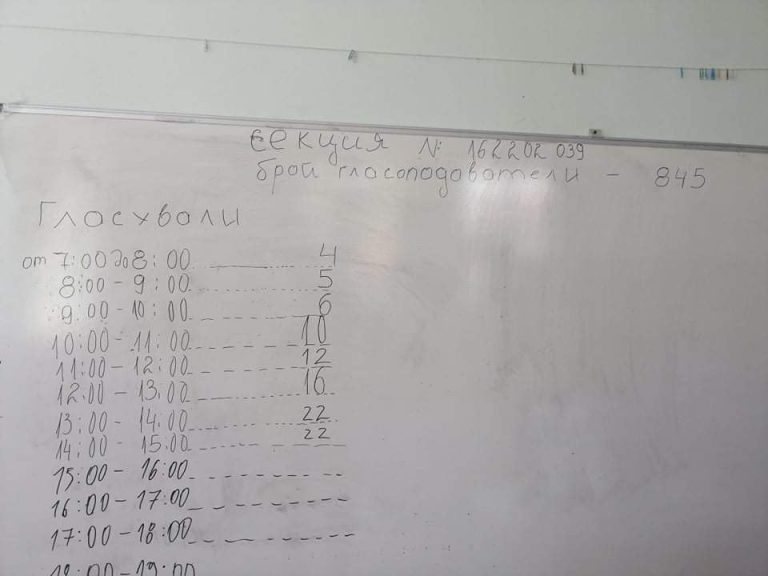 секция № 162202039
брой гласоподователи - 845
Гласували
от 7:00 до 8:00 4
8:00 - 9:00 5
9:00 - 10:00 6
10:00 - 11:00 10
11:00 - 12:00 12
12.00 - 13.00 16
13:00 - 14.00 22
14:00 - 15.00 22
15:00 - 16:00
16:00 - 17:00
17:00 - 18:00
18:00 - 19:00